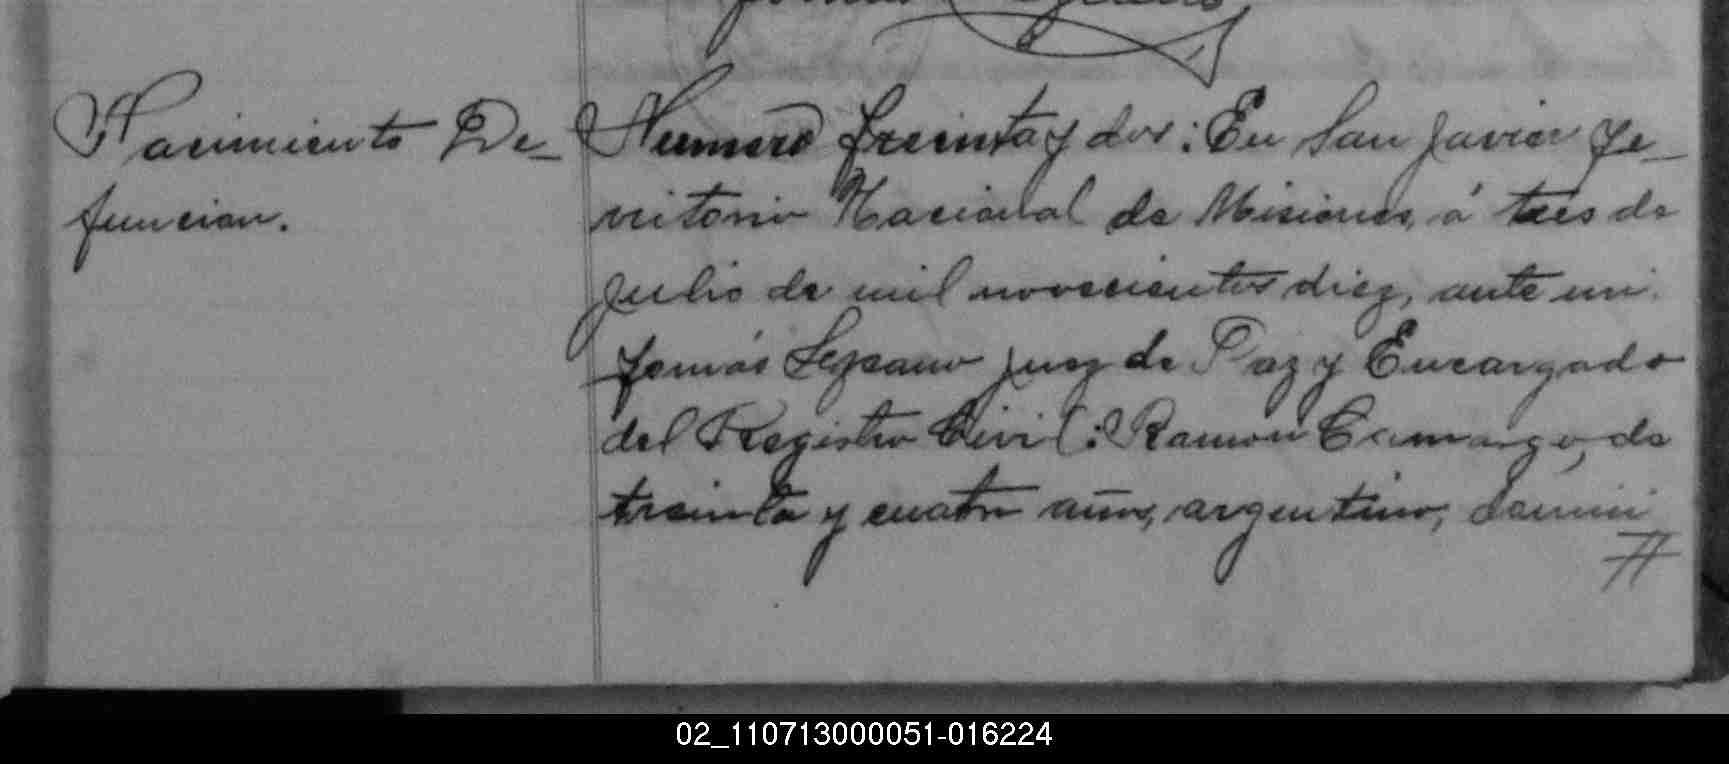 Nacimiento De-
funcion.
Numero treinta y dos: En San Javier Te-
rritorio Nacional de Misiones, á tres de
Julio de mil novecientos diez, ante mi
Tomás Juez de Paz y Encargado
del Registro Civil: Ramon Camargo, de
treinta y cuatro años, argentino, domici
02_110713000051-016224